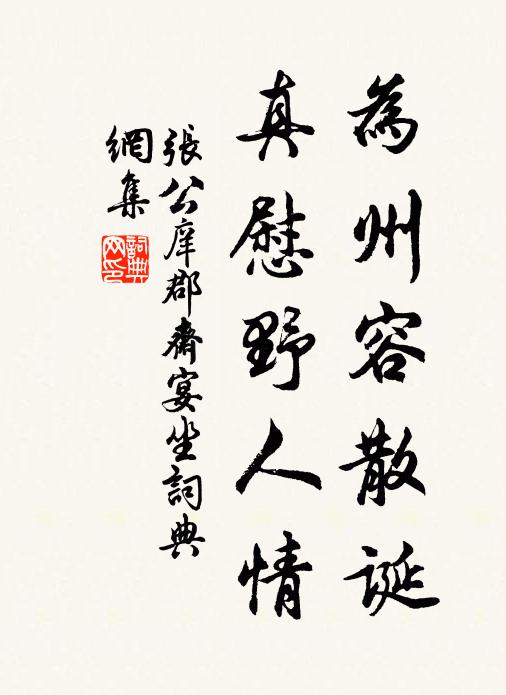 為州容散誕
真慰野人情
張公庠郡齋宴坐詞典
網集
詞典
网印